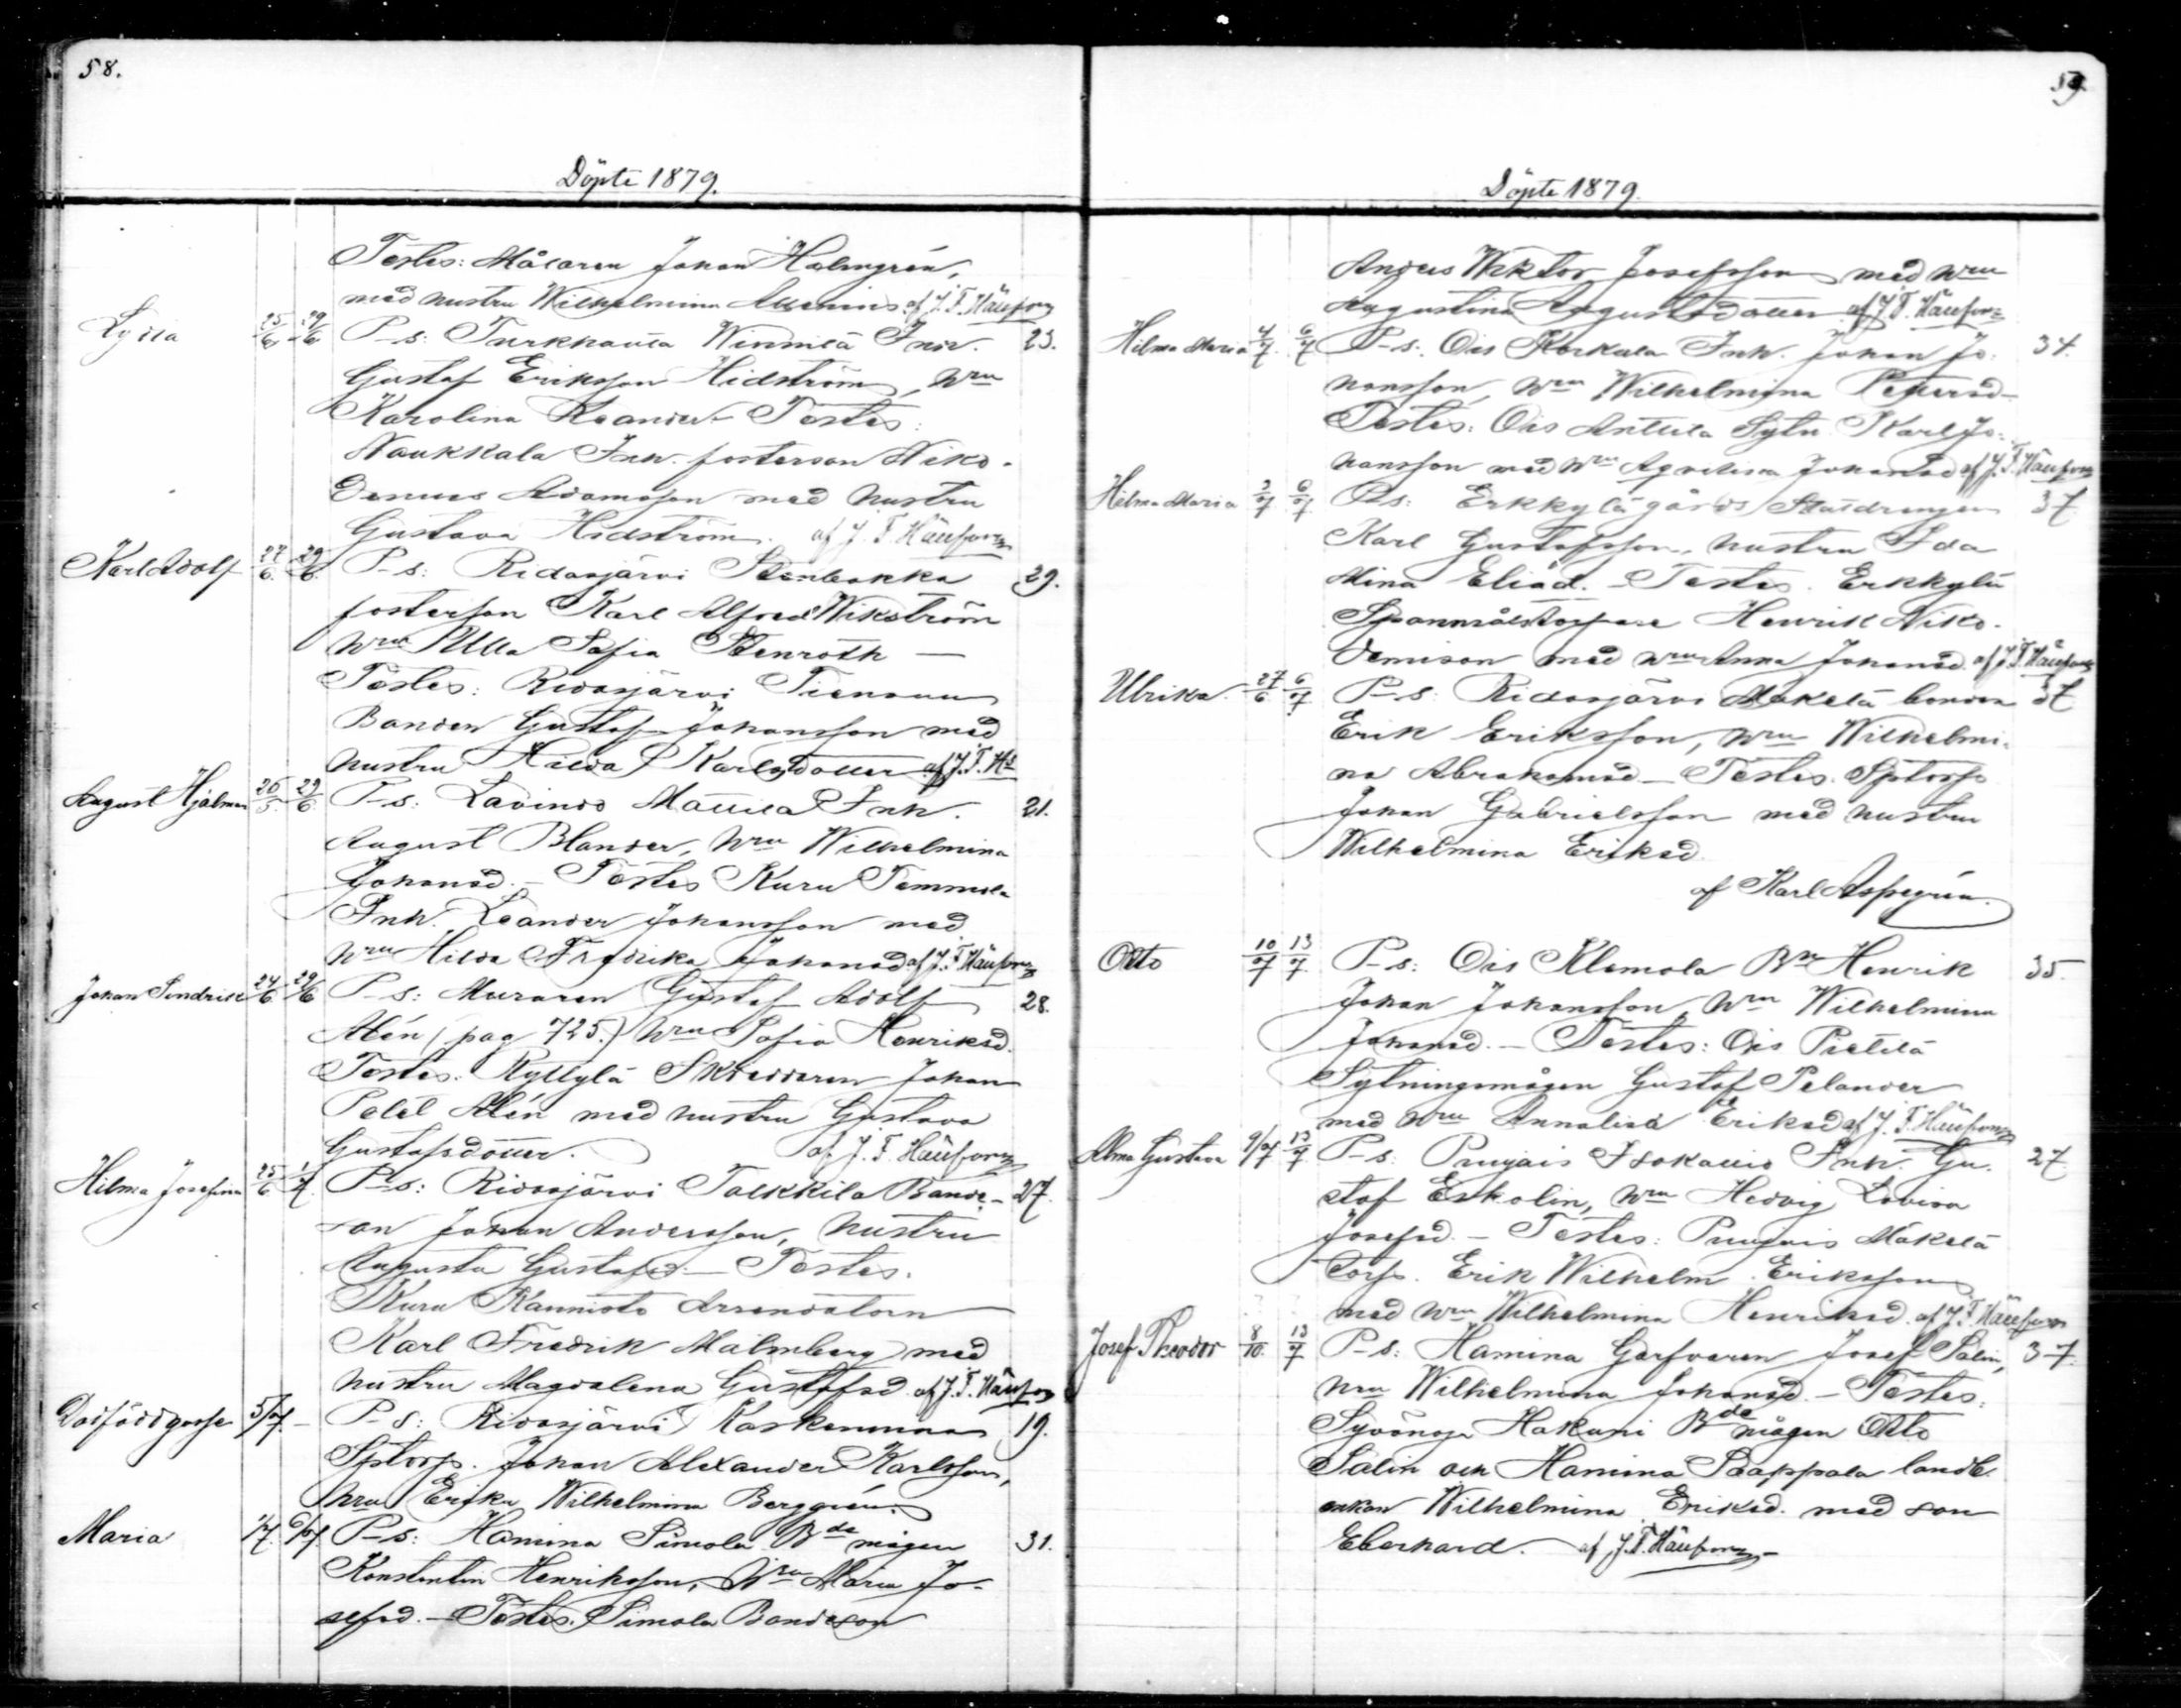 58.
Döpte 1879.
Testes: Målaren Johan Holmgrén,
med hustru Wilhelmina Allenius. af J. F. Häufon
Lydia 25/6 29/6 P-s: Turkhauta Winnilä Inh. 23.
Gustaf Eriksson Hidström, Hru
Karolina Leander Testes:
Naukkala Inh. fosterson Niko-
demus Adamsson med hustru
Gustava Hidström. af J. F. Häufon
Karl Adolf 27/6 29/6 P-s: Ridasjärvi Stenbakka 29.
fosterson Karl Alfred Wikström
Hru Ulla Sofia Stenroth —
Testes: Ridasjärvi Tiensuu
Bonden Gustaf Johansson med
hustru Hilda Karlsdotter af J. F. Hä
August Hjalmar 26/5 29/6 P-s: Lavinto Mattila Inh. 21.
August Blander, Hru Wilhelmina
Johansd. – Testes Kuru Tommola
Inh. Leander Johansson med
Hru Hilda Fredrika Johansd af J. F. Häufon
Johan Sendrik 24/6 29/6 P-s: Muraren Gustaf Adolf 28.
Alén (pag 725.) Hru Sofia Henriksd.
Testes. Ryttylä Skräddaren Johan
Alén med hustru Gustava
Gustafsdotter. af J. F. Häufon
Hilma Josefina 25/6 1/7 P-s: Ridasjärvi Talkkila Bonde- 27.
son Johan Andersson, hustru
Augusta Gustafsd. – Testes.
Kuru Kannisto Arrendatorn
Karl Fredrik Malmberg med
hustru Magdalena Gustafsd. af J. F. Häufon
Dödfödd gosse 5/7. – P-s: Ridasjärvi Kaskenmaa 19.
Sptorp. Johan Alexander Karlsson,
hru Erika Wilhelmina Berggrén.
Maria 1/7. 6/7 P-s: Hamina Simola Bde mågen 31.
Konstantin Henriksson, Hru Maria Jo-
sefsd. – Testes. Simola Bondeson
59.
Döpte 1879.
Anders Wiktor Josefsson med Hru
Augustina Augustsdotter af J. F. Häufon
Hilma Maria 4/7 6/7 P-s. Ois Korkala Inh. Johan Jo- 34.
hansson, Hru Wilhelmina Pettersd –
Testes: Ois Anttila Sytn. Karl Jo-
hansson med Hru Agvelina Johansd af J. F. Häufon
Hilma Maria 2/7 6/7 P-s: Erkkylägårds Statdrengen 37
Karl Gustafsson, hustru Ida
Mina Eliäd. – Testes. Erkkylä
Spanmålstorpare Henrik Niko-
demison med Hru Anna Johansd. af J. F. Häufon
Ulrika. 27/6 6/7 P-s: Ridasjärvi Mäkelä bonden 37
Erik Eriksson, Hru Wilhelmi-
na Abrahamsd – Testes. Sptorp.
Johan Gabrielsson med hustru
Wilhelmina Eriksd.
af Karl Aspegrén.
Otto 10/7 13/7 P-s: Ois Klemola Bn Henrik 35.
Johan Johansson, Hru Wilhelmina
Johansd. – Testes: Ois Pietilä
Sytningsmågen Gustaf Pelander
med Hru Annalisa Eriksd af J. F. Häufon
Alma Gustava 9/7 13/7 P-s: Pungais Isokallio Inh. Gu- 27.
staf Eskolin, Hru Hedvig Lovisa
Josefsd. – Testes: Pungais Mäkelä
torp. Erik Wilhelm Eriksson
med Hru Wilhelmina Henriksd. af J. F. Häufon
Josef Theodor 8/10. 13/7 P-s: Hamina Garfvaren Josef Salin, 37.
Hru Wilhelmina Johansd. – Testes.
Syvänoja Hakuni Bde mågen Otto
Salin och Hamina Paappala landb.
enkan Wilhelmina Eriksd. med son
Eberhard. – af J. F. Häufon